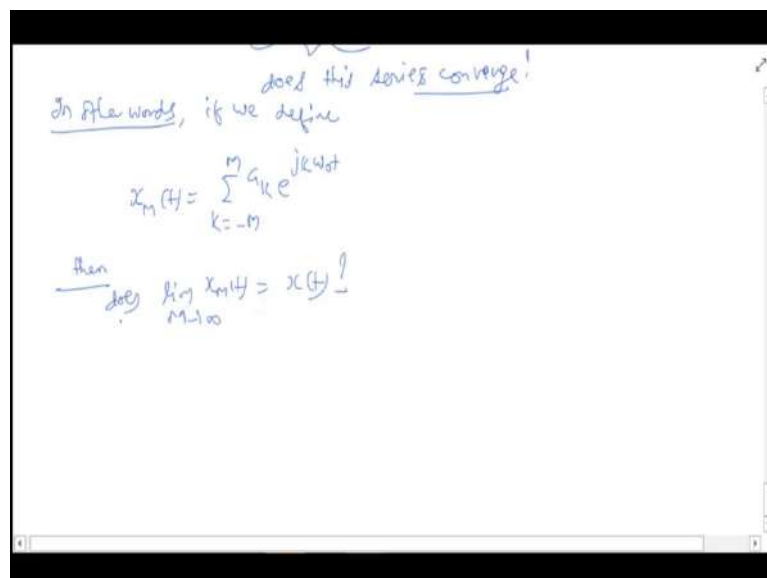 does this series converge!
In other words, if we define
x_M(t) = \sum_{k=-M}^{M} a_k e^{jkω_0t}
then
does lim_{M→∞} x_M(t) = x(t)?